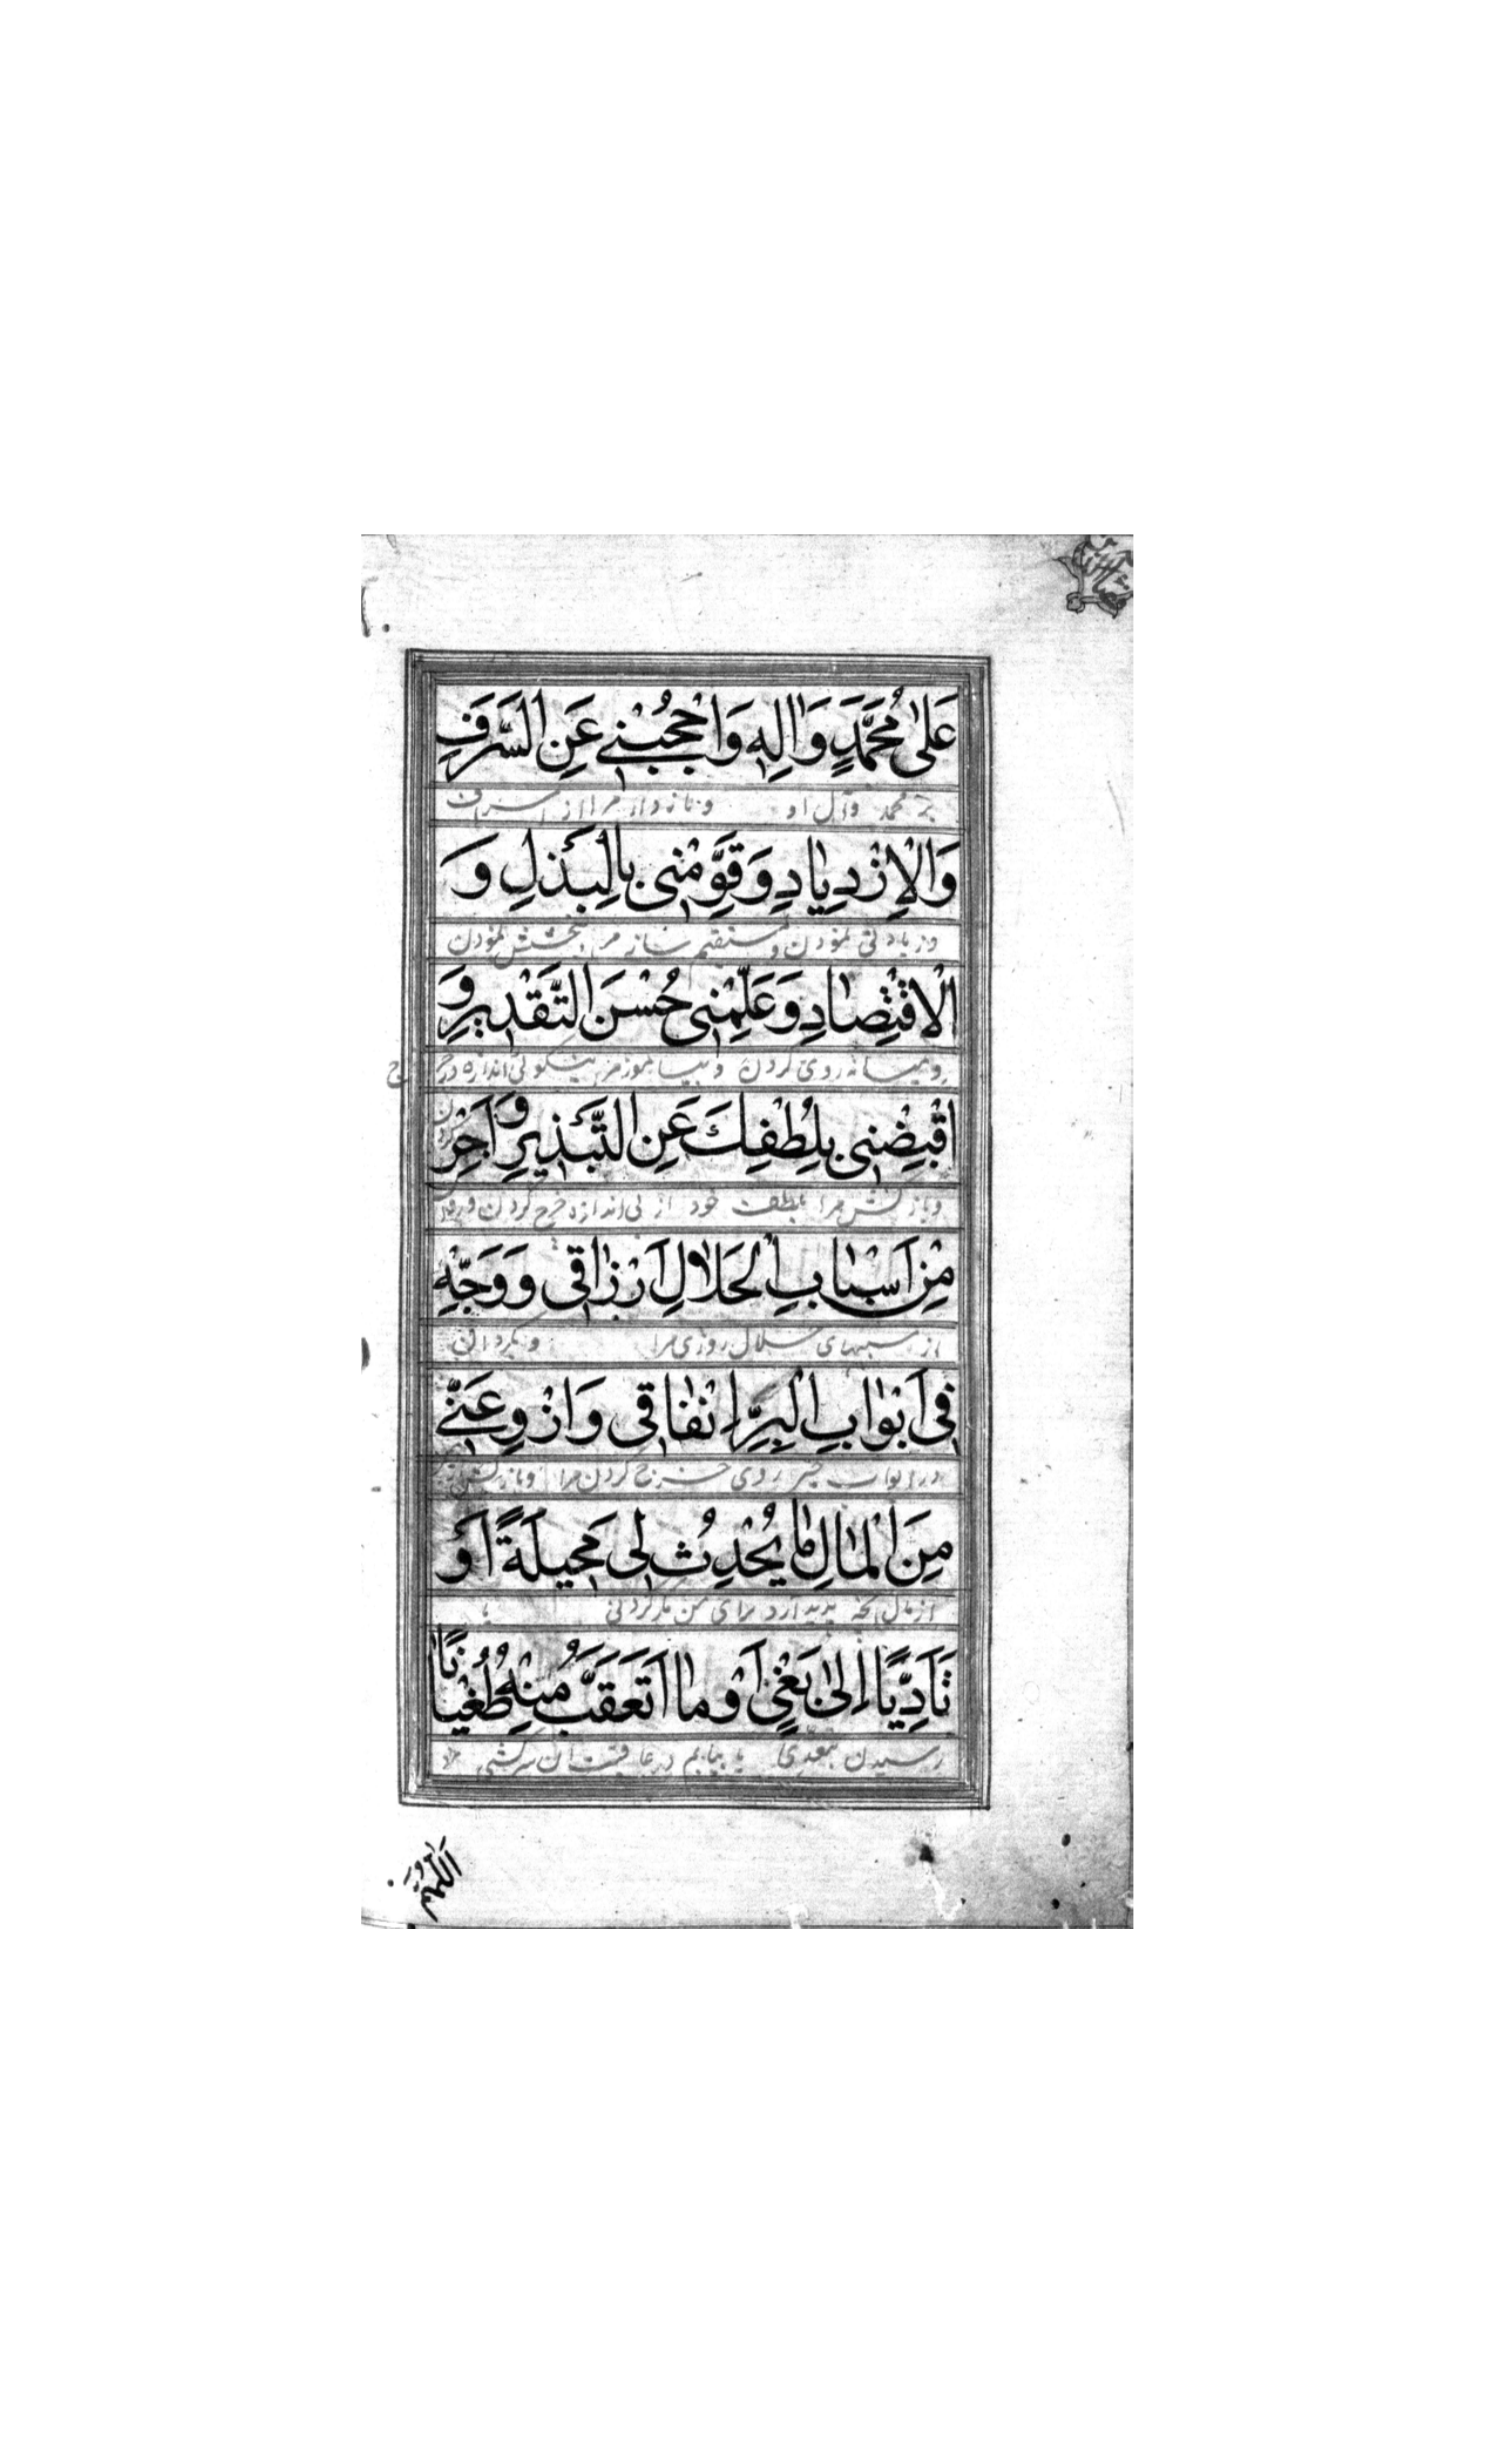 عَلٰى مُحَمَّدٍ وَاٰلِهِ وَاحْجُبْنِي عَنِ السَّرَفِ
بر محمد وآل او و بازدار مرا از اسراف
وَالْاِزْدِيٰادِ وَقَوِّمْنِي بِالْبَذْلِ وَ
وزیادتی نمودن و مستقیم ساز مرا ببخشش نمودن
الْاقْتِصٰادِ وَعَلِّمْنِي حُسْنَ التَّقْدِيرِ وَ
ومیانه روی کردن و بیاموز مرا نیکوئی اندازه در خرج
کردن
اقْبِضْنِي بِلُطْفِكَ عَنِ التَّبْذِيرِ وَاَجْرِ
وبازکش مرا بلطف خود از بی اندازه خرج کردن و روان
مِنْ اَسْبٰابِ الْحَلٰالِ اَرْزٰاقِي وَوَجِّهْ
از سببهای حلال روزی مرا و بگردان
فِي اَبْوٰابِ الْبِرِّ اِنْفٰاقِي وَازْوِ عَنِّي
در ابواب خیر روی خرج کردن مرا وبازکش
مِنَ الْمٰالِ مٰا يُحْدِثُ لِي مَخِيلَةً اَوْ
از مال آنچه پدید آرد برای من تکبر کردنی یا
تَاَدِّيًا اِلٰى بَغْيٍ اَوْ مٰا اَتَعَقَّبُ مِنْهُ طُغْيٰانًا
رسیدن بتعدی یا بیابم در عاقبت آن سرکشی
اَللّٰهُمَّ